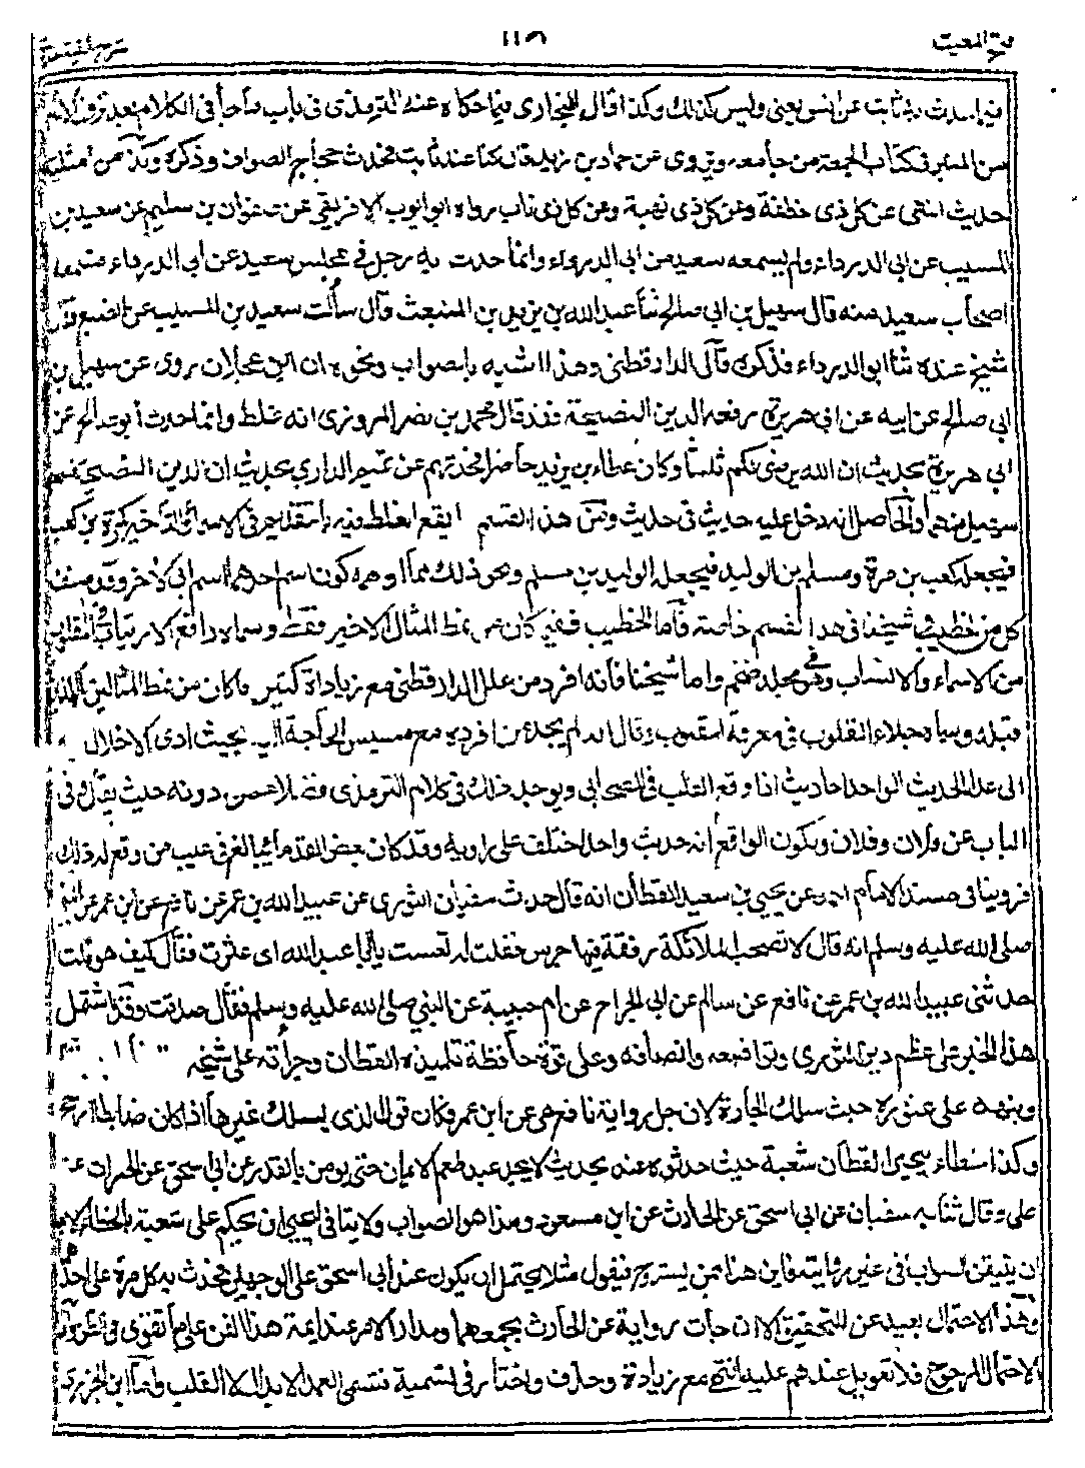 فتح المغيث ١١٦
فيما حدث به ثابت عن انس يعنى وليس كذلك وكذا قال البخارى فيما حكاه عنه الترمذى فى باب ماجأ فى الكلام بعد نزول الامام
من المنبر فى كتاب الجمعة من جامعه ويروى عن حماد بن زيد قال كنا عند ثابت فحدث حجاج الصواف وذكره وكذا من امثلته
حديث النهى عن كل ذى خطفة وعن كل ذى نهبة وعن كل ذى ناب رواه ابو ايوب الافريقى عن صفوان بن سليم عن سعيد بن
المسيب عن ابى الدرداء ولم يسمعه سعيد من ابى الدرداء وانما حدث به رجل فى مجلس سعيد عن ابى الدرداء فسمعه
اصحاب سعيد منه قال سهيل بن ابى صالح ثنا عبد الله بن يزيد بن المنبعث قال سألت سعيد بن المسيب عن الضبع
شيخ عنده ثنا ابو الدرداء فذكره قال الدارقطنى وهذا اشبه بالصواب ونحوه ان ابن عجلان روى عن سهيل بن
ابى صالح عن ابيه عن ابى هريرة رفعه الدين النصيحة فقد قال محمد بن نصر المروزى انه غلط وانما حدث ابو صالح عن
ابى هريرة بحديث ان الله يرضى لكم ثلثا وكان عطاء بن يزيد حاضرا فحدثهم عن تميم الدارى بحديث ان الدين النصيحة فسمعهما
سهيل منهما والحاصل انه دخل عليه حديث فى حديث ومن هذا القسم ما يقع الغلط فيه بالتقديم فى الاسماء والتأخير كمرة بن كعب
فيجعله كعب بن مرة ومسلم بن الوليد فيجعله الوليد بن مسلم ونحو ذلك مما اوهمه كون اسم احدهما اسم ابى الاخر وقد صنف
كل من الخطيب وشيخنا فى هذا القسم خاصة فأما الخطيب ففيما كان من نمط المثال الاخير فقط وسماه رافع الارتياب فى المقلوب
من الاسماء والانساب وهو فى مجلد ضخم واما شيخنا فانه افرد من علل الدارقطنى مع زيادة كثير ما كان من نمط المثالين اللذين
قبله وسماه جلاء القلوب فى معرفة المقلوب وقال انه لم يجد من افرده مع مسيس الحاجة اليه بحيث ادى الاخلال به
الى عد الحديث الواحد احاديث اذا وقع القلب فى الصحابى ويوجد ذلك فى كلام الترمذى فضلا عمن دونه حيث يقال وفى
الباب عن فلان وفلان ويكون الواقع انه حديث واحد اختلف على راويه وقد كان بعض القدماء يبالغ فى عيب من وقع له ذلك
فروينا فى مسند الامام احمد عن يحيى بن سعيد القطان انه قال حدث سفيان الثورى عن عبيد الله بن عمر عن نافع عن ابن عمر عن النبى
صلى الله عليه وسلم انه قال لا تصحب الملائكة رفقة فيها جرس فقلت له تعست يا ابا عبد الله اى عثرت فقال كيف هو قلت
حدثنى عبيد الله بن عمر عن نافع عن سالم عن ابى الجراح عن ام حبيبة عن النبى صلى الله عليه وسلم فقال صدقت وقد اشتمل
هذا الخبر على عظم دين الثورى وتواضعه وانصافه وعلى قوة حافظة تلميذه القطان وجرأته على شيخه
وينبهه على عثوره حيث سلك الجادة لان جل رواية نافع هى عن ابن عمر فكان قول الذى يسلك غيرها اذا كان ضابطا ارجح
وكذا اخطاء يحيى القطان شعبة حيث حدثوه عنه بحديث لا يجد عبد طعم الايمان حتى يومن بالقدر عن ابى اسحق عن الحرث عن
على وقال ثنا به سفيان عن ابى اسحق عن الحارث عن ابن مسعود وهذا هو الصواب ولا يتأتى ليحيى ان يحكم على شعبة بالخطاء الا بعد
ان يتيقن الصواب فى غير روايته فاين هذا ممن يستروح فيقول مثلا يحتمل ان يكون عند ابى اسحق على الوجهين فحدث به كل مرة على احدهما
وهذا الاحتمال بعيد عن التحقيق الا ان جأت رواية عن الحارث بجمعهما ومدار الامر عند ايمة هذا الفن على ما يقوى فى الظن واما
الاحتمال المرجوح فلا تعويل عندهم عليه انتهى مع زيادة وحذف واختار فى تسمية قسمى العمد الابدال لا القلب واما ابن الجزرى